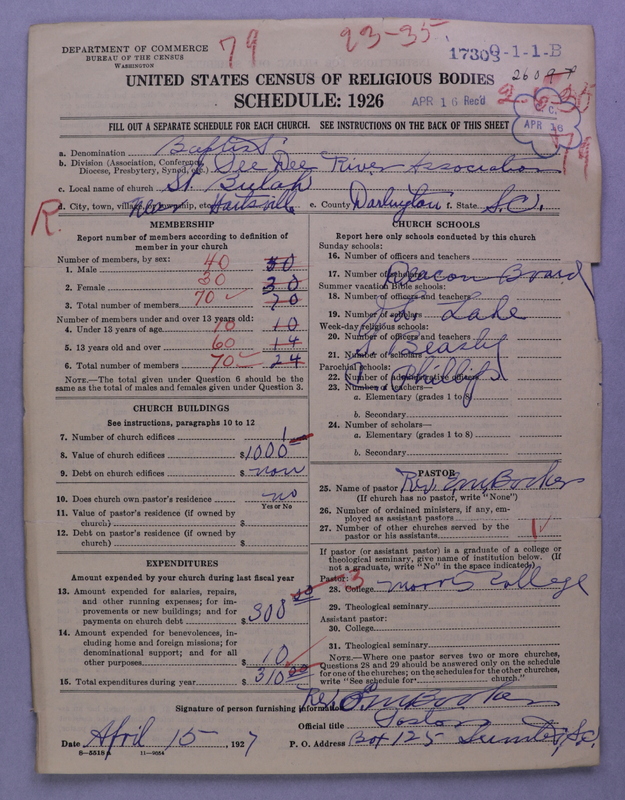 DEPARTMENT OF COMMERCE
BUREAU OF THE CENSUS
WASHINGTON
79
23-35
17309-1-1-B
UNITED STATES CENSUS OF RELIGIOUS BODIES
SCHEDULE: 1926
APR 16 Rec'd
APR 16
79
FILL OUT A SEPARATE SCHEDULE FOR EACH CHURCH. SEE INSTRUCTIONS ON THE BACK OF THIS SHEET
a. Denomination Baptist
b. Division (Association, Conference, Diocese, Presbytery, Synod, etc.) Pee Dee River Association
c. Local name of church St. Bulah
d. City, town, village, or township, etc. Near Hartsville e. County Darlington f. State S.C.
R.
MEMBERSHIP
Report number of members according to definition of
member in your church
Number of members, by sex:
1. Male 40
2. Female 30 30
3. Total number of members 70 70
Number of members under and over 13 years old:
4. Under 13 years of age 10 10
5. 13 years old and over 60 14
6. Total number of members 70 24
NOTE.—The total given under Question 6 should be the
same as the total of males and females given under Question 3.
CHURCH BUILDINGS
See instructions, paragraphs 10 to 12
7. Number of church edifices 1
8. Value of church edifices $1000
9. Debt on church edifices $ non
10. Does church own pastor's residence no
Yes or No
11. Value of pastor's residence (if owned by
church) $
12. Debt on pastor's residence (if owned by
church) $
EXPENDITURES
Amount expended by your church during last fiscal year
13. Amount expended for salaries, repairs,
and other running expenses; for im-
provements or new buildings; and for
payments on church debt $ 308 00 3
14. Amount expended for benevolences, in-
cluding home and foreign missions; for
denominational support; and for all
other purposes $ 10
15. Total expenditures during year $ 310 00
CHURCH SCHOOLS
Report here only schools conducted by this church
Sunday schools:
16. Number of officers and teachers
17. Number of scholars
Deacon Board
Summer vacation Bible schools:
18. Number of officers and teachers
19. Number of scholars
Lake
Week-day religious schools:
20. Number of officers and teachers
21. Number of scholars
Parochial schools:
22. Number of administrative officers
Phillips
23. Number of teachers—
a. Elementary (grades 1 to 8)
b. Secondary
24. Number of scholars—
a. Elementary (grades 1 to 8)
b. Secondary
PASTOR
25. Name of pastor Rev. E M Booker
(If church has no pastor, write "None")
26. Number of ordained ministers, if any, em-
ployed as assistant pastors
27. Number of other churches served by the
pastor or his assistants 1
If pastor (or assistant pastor) is a graduate of a college or
theological seminary, give name of institution below. (If
not a graduate, write "No" in the space indicated)
Pastor:
28. College Morris College
29. Theological seminary
Assistant pastor:
30. College
31. Theological seminary
NOTE.—Where one pastor serves two or more churches,
Questions 28 and 29 should be answered only on the schedule
for one of the churches; on the schedules for the other churches,
write "See schedule for church."
Signature of person furnishing information Rev. E M Booker
Official title Pastor
Date April 15, 1927 P. O. Address Box 125 Sumter, S.C.
8—5518a 11—9554